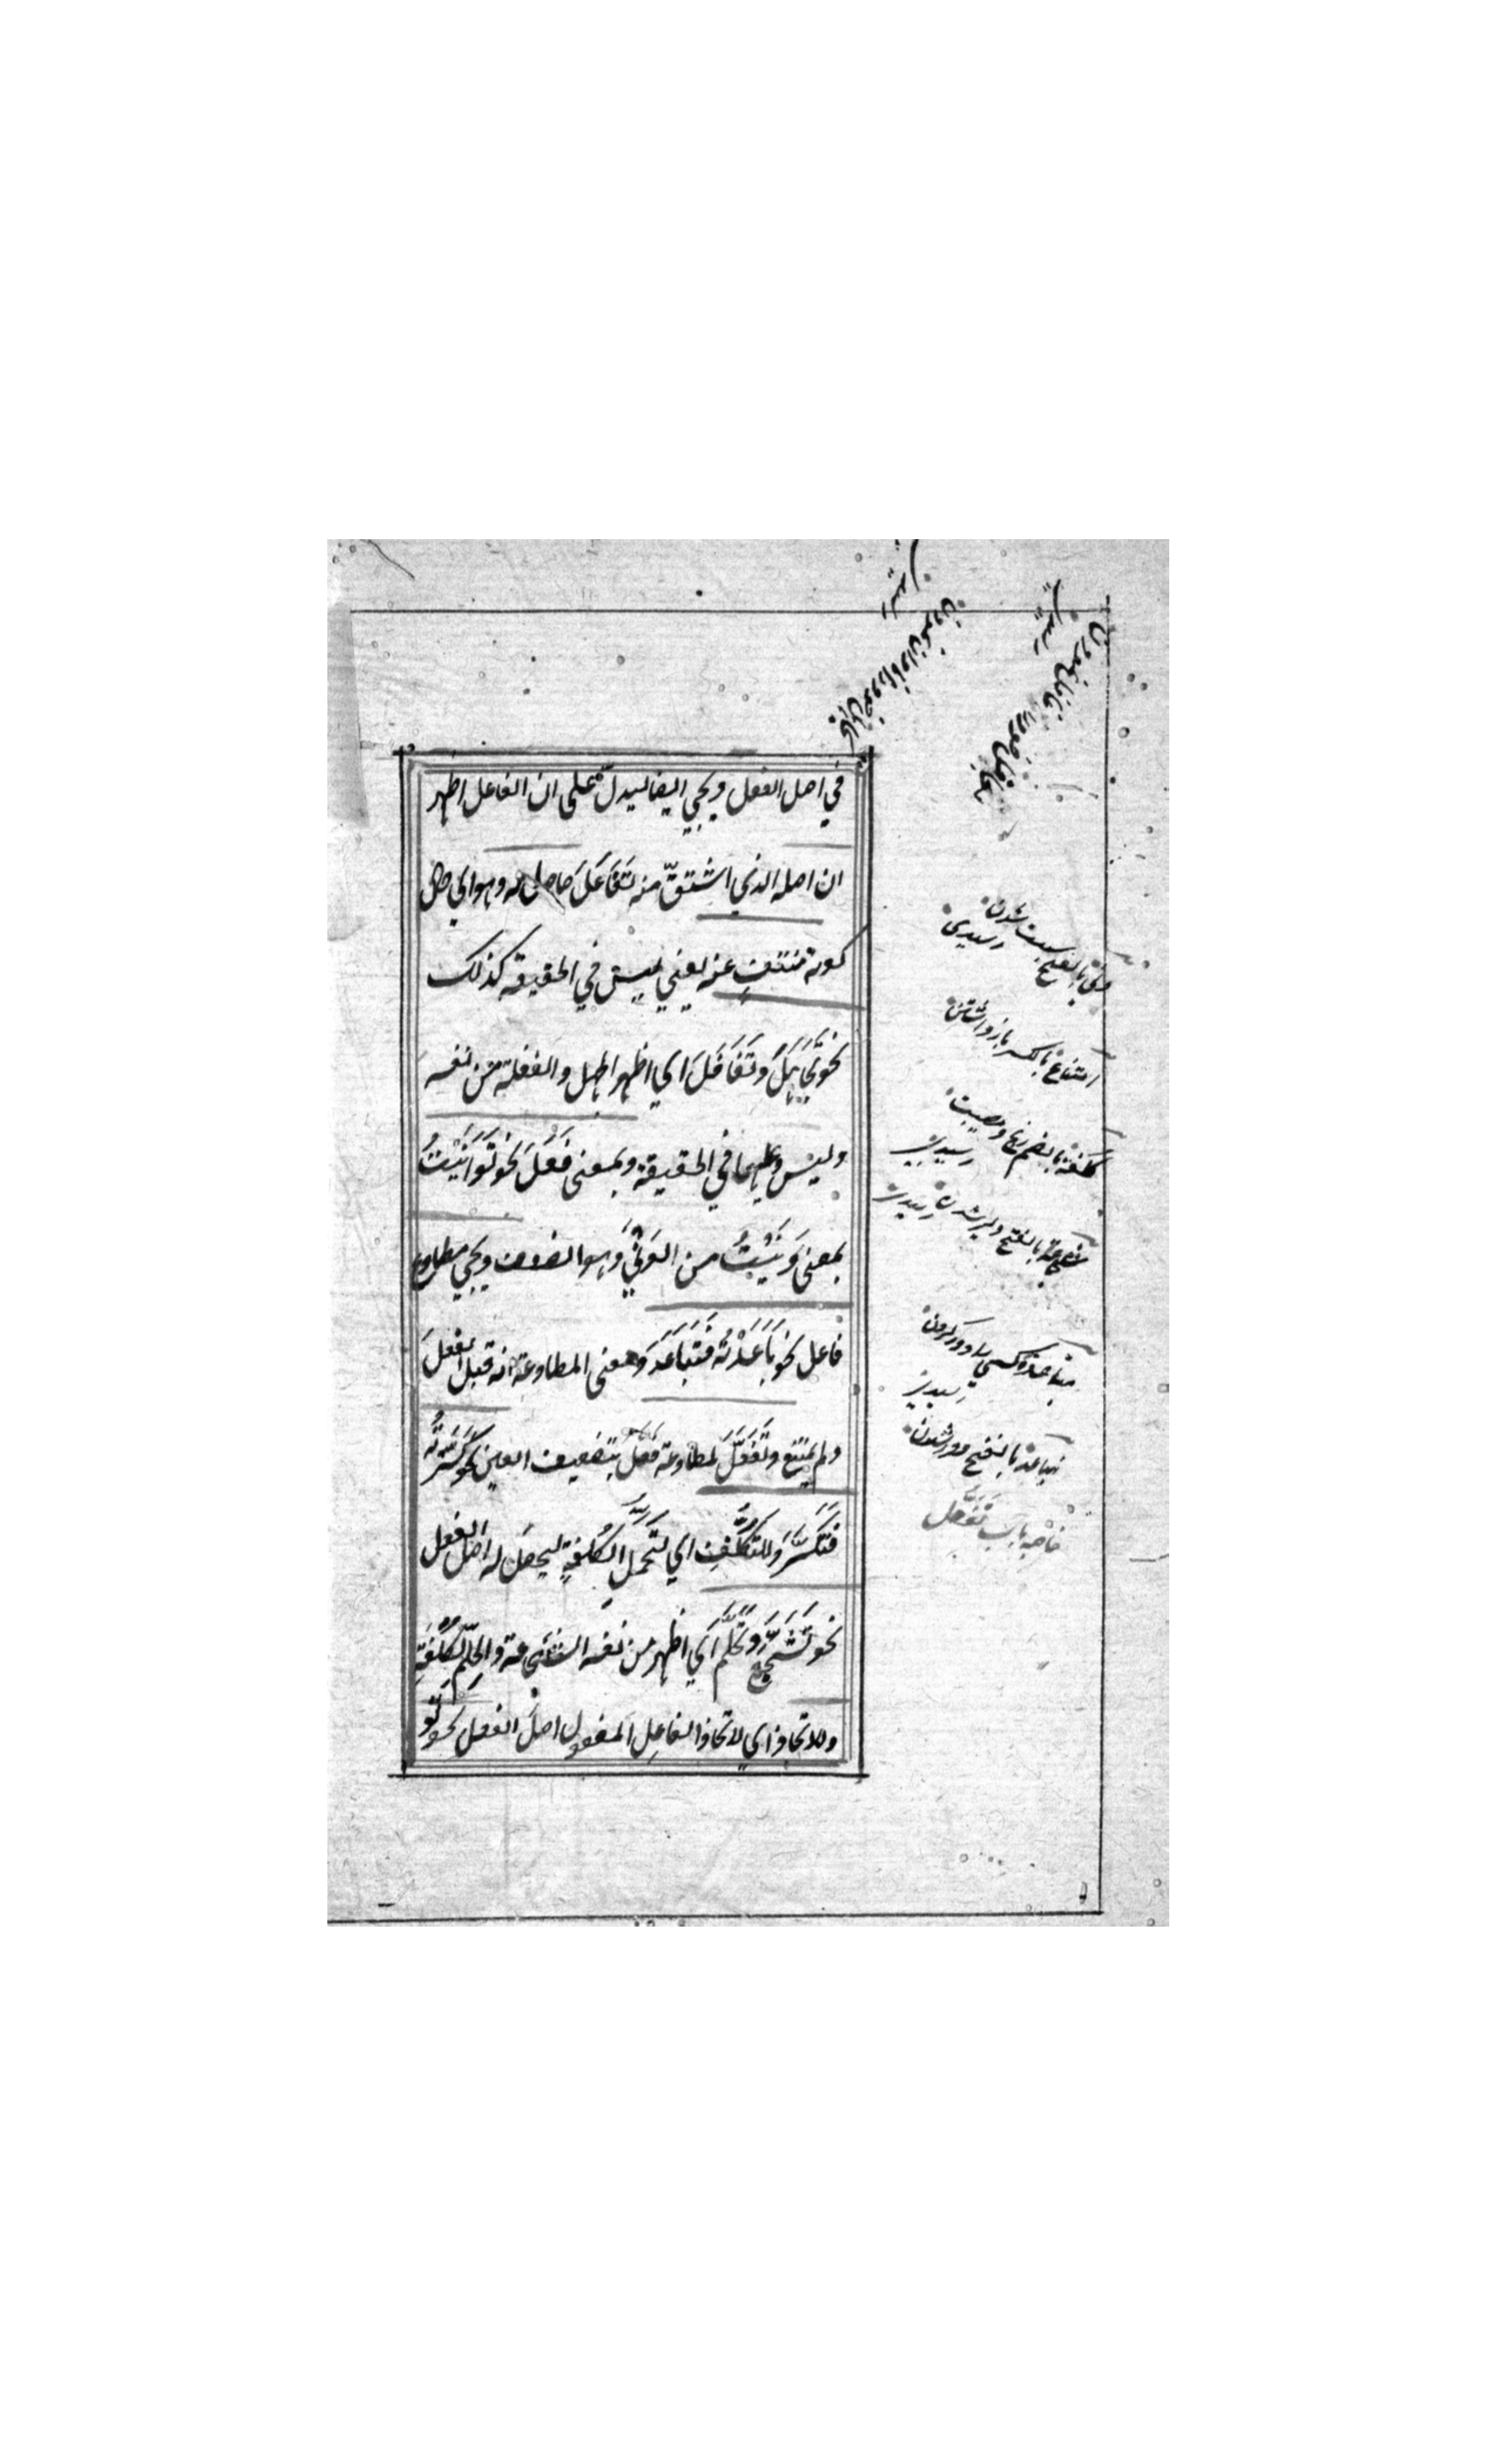 في اصل الفعل ويجي ايضا ليدل على ان الفاعل اظهر
ان اصله الذي اشتقّ منه تَفَاعَلَ حاصل له وهو اي حال
كونه منتفٍ عنه يعني ليس في الحقيقة كذلك
نحو تَجَاهَلَ وتَغَافَلَ اي اظهر الجهل والغفلة من نفسه
وليس عليهما في الحقيقة وبمعنى فَعَلَ نحو تَوَانَيْتُ
بمعنى وَنَيْتُ من الوَنْيِ وهو الضعف ويجي مطاوع
فاعل نحو بَاعَدْتُه فَتَبَاعَدَ ومعنى المطاوعة انه قبل الفعلَ
ولم يمتنع وتَفَعَّلَ لمطاوعة فعّل بتضعيف العين نحو كَسَّرْتُه
فَتَكَسَّرَ وللتكلُّفِ اي لتحمّلِ الكُلفةِ ليحصَل له اصل الفعل
نحو تَشَجَّعَ وتَحَلَّمَ اي اظهر من نفسه الشجاعة والحِلْمَ بكُلْفَةٍ
وللاتخاذ اي لاتخاذ الفاعل المفعول اصلَ الفعل نحو تَو
ونى بالفتح سست شدن
رسیدی
امتناع بالکسر باز داشتن
کلفة بالضم رنج و مصیبت
رسیدن
شجاعة بالفتح دلیر شدن
مباعدة کسی را دور کردن
تباعد بالفتح دور شدن
خاصه باب تَفَعُّل